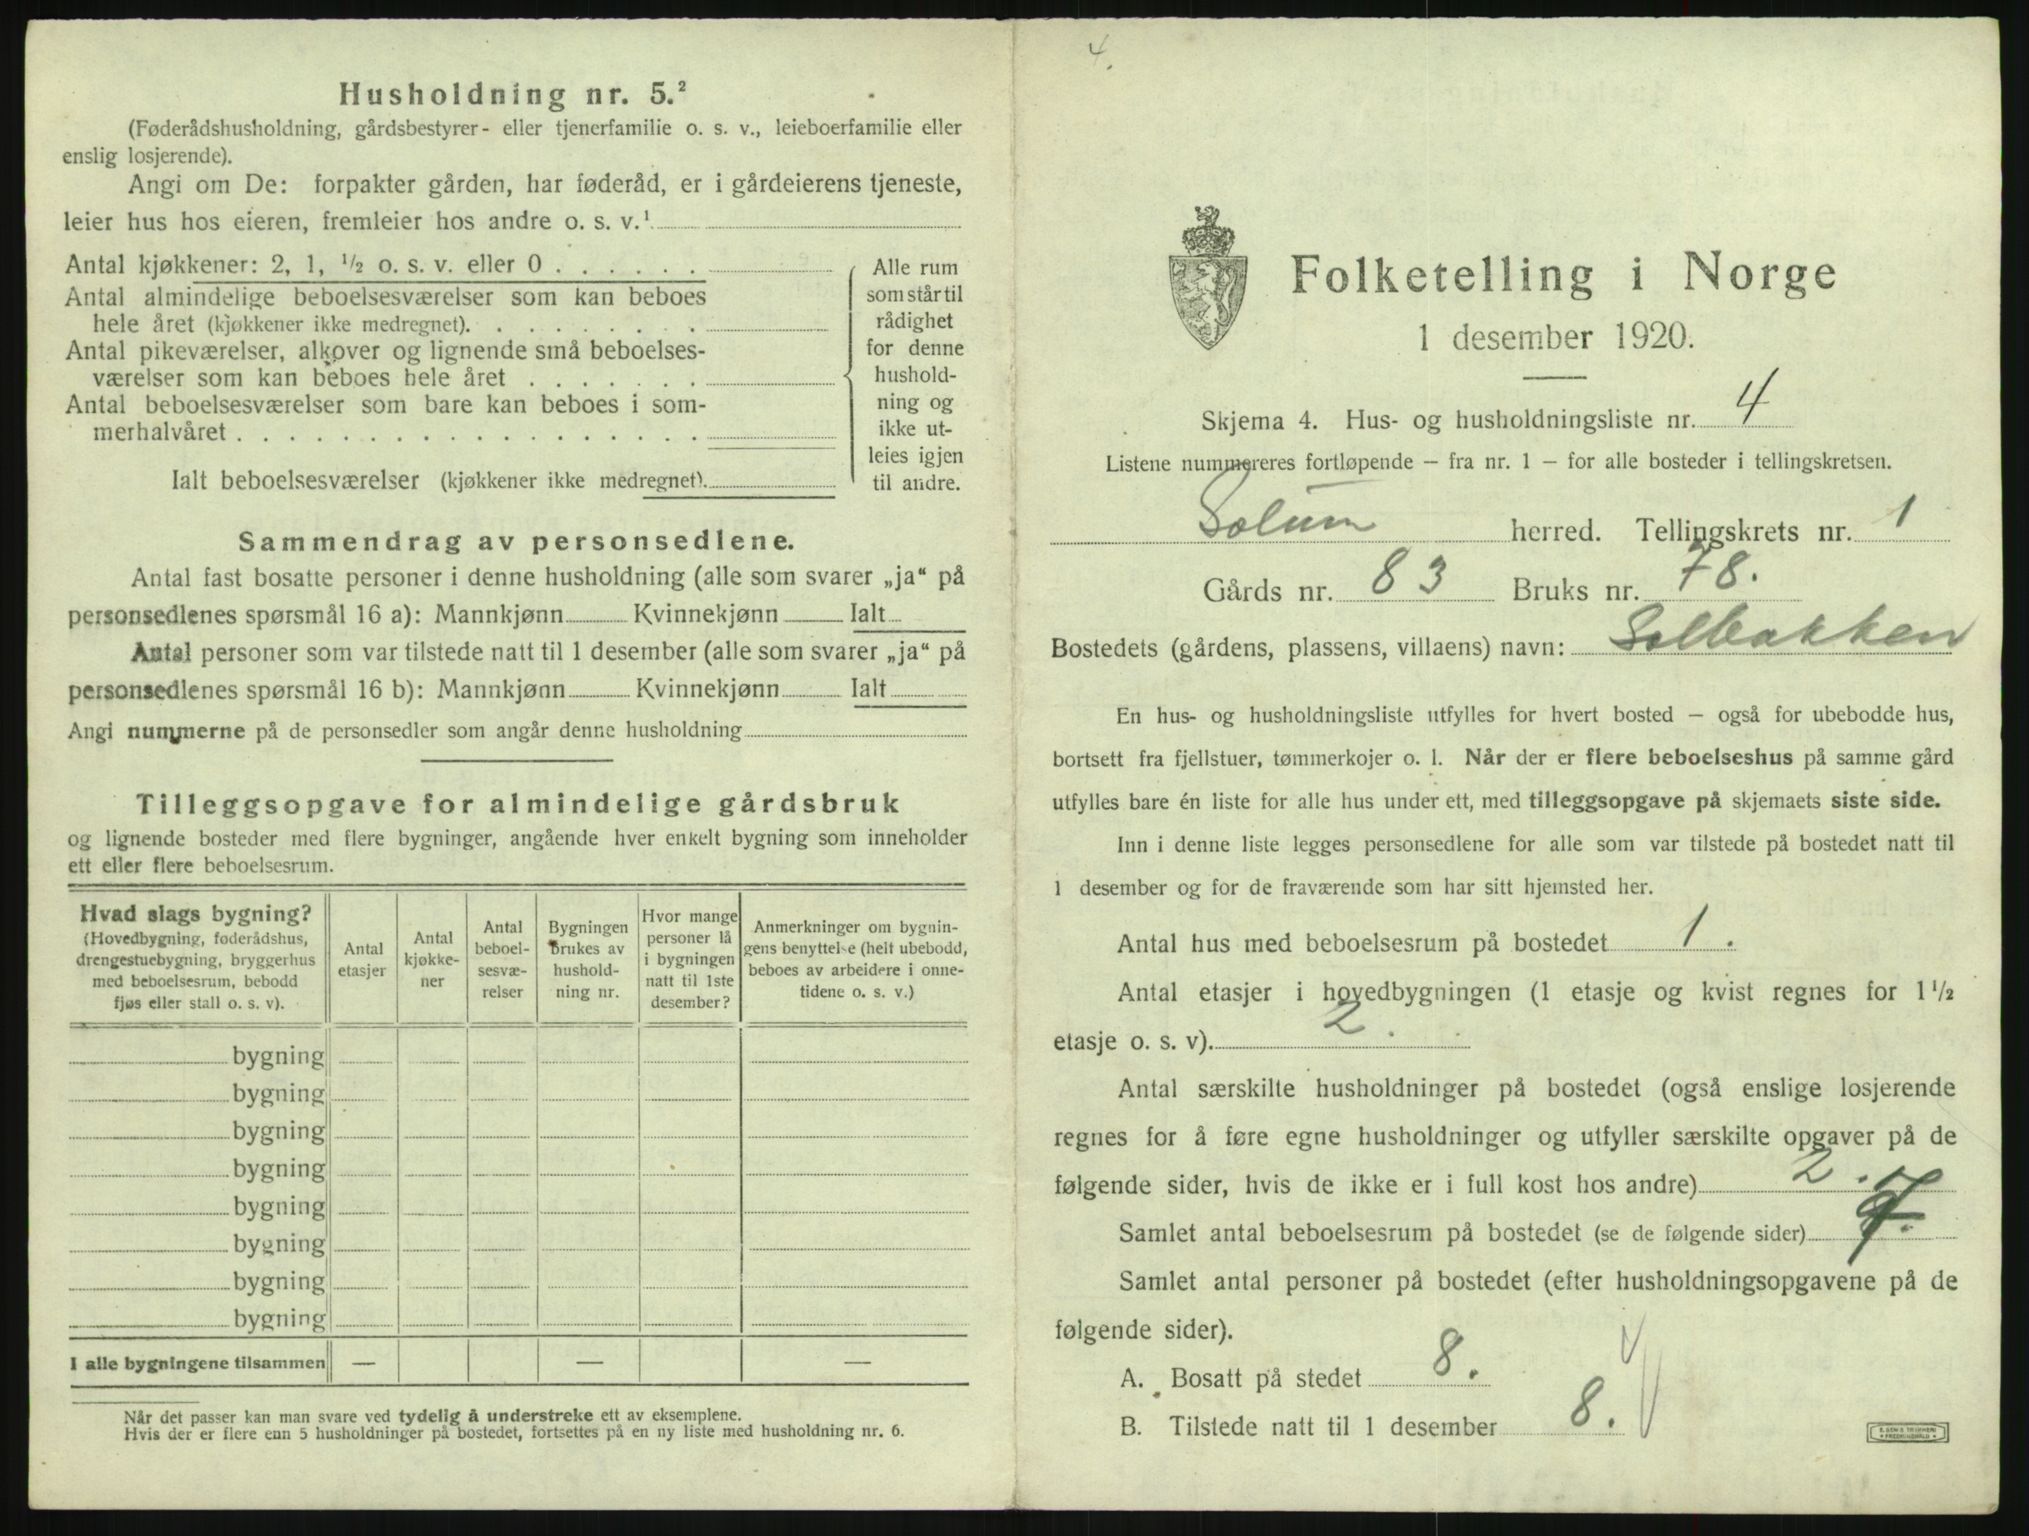 Husholdning nr. 5.²
(Føderådshusholdning, gårdsbestyrer- eller tjenerfamilie o. s. v., leieboerfamilie eller
enslig losjerende).
Angi om De: forpakter gården, har føderåd, er i gårdeierens tjeneste,
leier hus hos eieren, fremleier hos andre o. s. v.¹
Antal kjøkkener: 2, 1, ½ o. s. v. eller 0
Antal almindelige beboelsesværelser som kan beboes
hele året (kjøkkener ikke medregnet).
Antal pikeværelser, alkover og lignende små beboelses-
værelser som kan beboes hele året
Antal beboelsesværelser som bare kan beboes i som-
merhalvåret
Ialt beboelsesværelser (kjøkkener ikke medregnet).
Alle rum
som står til
rådighet
for denne
hushold-
ning og
ikke ut-
leies igjen
til andre.
Sammendrag av personsedlene.
Antal fast bosatte personer i denne husholdning (alle som svarer „ja“ på
personsedlenes spørsmål 16 a): Mannkjønn Kvinnekjønn Ialt
Antal personer som var tilstede natt til 1 desember (alle som svarer „ja“ på
personsedlenes spørsmål 16 b): Mannkjønn Kvinnekjønn Ialt
Angi nummerne på de personsedler som angår denne husholdning
Tilleggsopgave for almindelige gårdsbruk
og lignende bosteder med flere bygninger, angående hver enkelt bygning som inneholder
ett eller flere beboelsesrum.
Hvad slags bygning?
(Hovedbygning, føderådshus,
drengestuebygning, bryggerhus
med beboelsesrum, bebodd
fjøs eller stall o. s. v).
Antal
etasjer
Antal
kjøkke-
ner
Antal
beboel-
sesvæ-
relser
Bygningen
brukes av
hushold-
ning nr.
Hvor mange
personer lå
i bygningen
natt til 1ste
desember?
Anmerkninger om bygnin-
gens benyttelse (helt ubebodd,
beboes av arbeidere i onne-
tidene o. s. v.)
bygning
bygning
bygning
bygning
bygning
bygning
bygning
bygning
I alle bygningene tilsammen — — —
Når det passer kan man svare ved tydelig å understreke ett av eksemplene.
Hvis der er flere enn 5 husholdninger på bostedet, fortsettes på en ny liste med husholdning nr. 6.
4.
Folketelling i Norge
1 desember 1920.
Skjema 4. Hus- og husholdningsliste nr. 4
Listene nummereres fortløpende – fra nr. 1 – for alle bosteder i tellingskretsen.
Solum herred. Tellingskrets nr. 1
Gårds nr. 83 Bruks nr. 78.
Bostedets (gårdens, plassens, villaens) navn: Solbakken
En hus- og husholdningsliste utfylles for hvert bosted – også for ubebodde hus,
bortsett fra fjellstuer, tømmerkojer o. l. Når der er flere beboelseshus på samme gård
utfylles bare én liste for alle hus under ett, med tilleggsopgave på skjemaets siste side.
Inn i denne liste legges personsedlene for alle som var tilstede på bostedet natt til
1 desember og for de fraværende som har sitt hjemsted her.
Antal hus med beboelsesrum på bostedet 1.
Antal etasjer i hovedbygningen (1 etasje og kvist regnes for 1½
etasje o. s. v). 2.
Antal særskilte husholdninger på bostedet (også enslige losjerende
regnes for å føre egne husholdninger og utfyller særskilte opgaver på de
følgende sider, hvis de ikke er i full kost hos andre) 2.
Samlet antal beboelsesrum på bostedet (se de følgende sider) 7.
Samlet antal personer på bostedet (efter husholdningsopgavene på de
følgende sider).
A. Bosatt på stedet 8.
B. Tilstede natt til 1 desember 8.